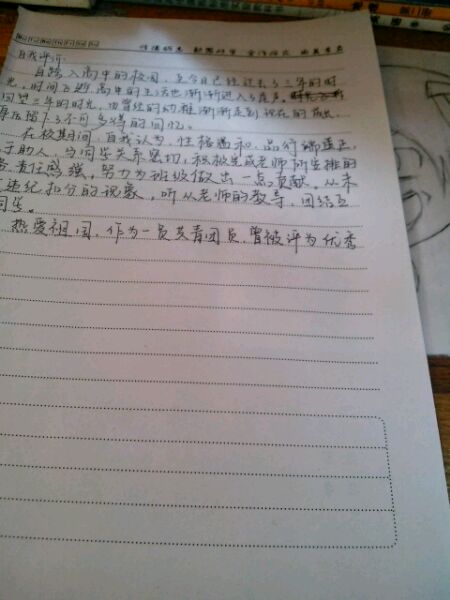 自我评价:
自踏入高中的校园,至今日已经过去了三年的时
光,时间飞逝,高中的生活也渐渐进入了尾声。
回望三年的时光,由曾经的幼稚渐渐走到现在的成
留下了不可多得的回忆。
在校期间,自我认为,性格温和、品行端正,
于助人,与同学关系密切,积极完成老师所安排的
责任感强,努力为班级做出一点贡献,从未
违纪扣分的现象,听从老师的教导,团结互
同学。
热爱祖国,作为一员共青团员,曾被评为优秀